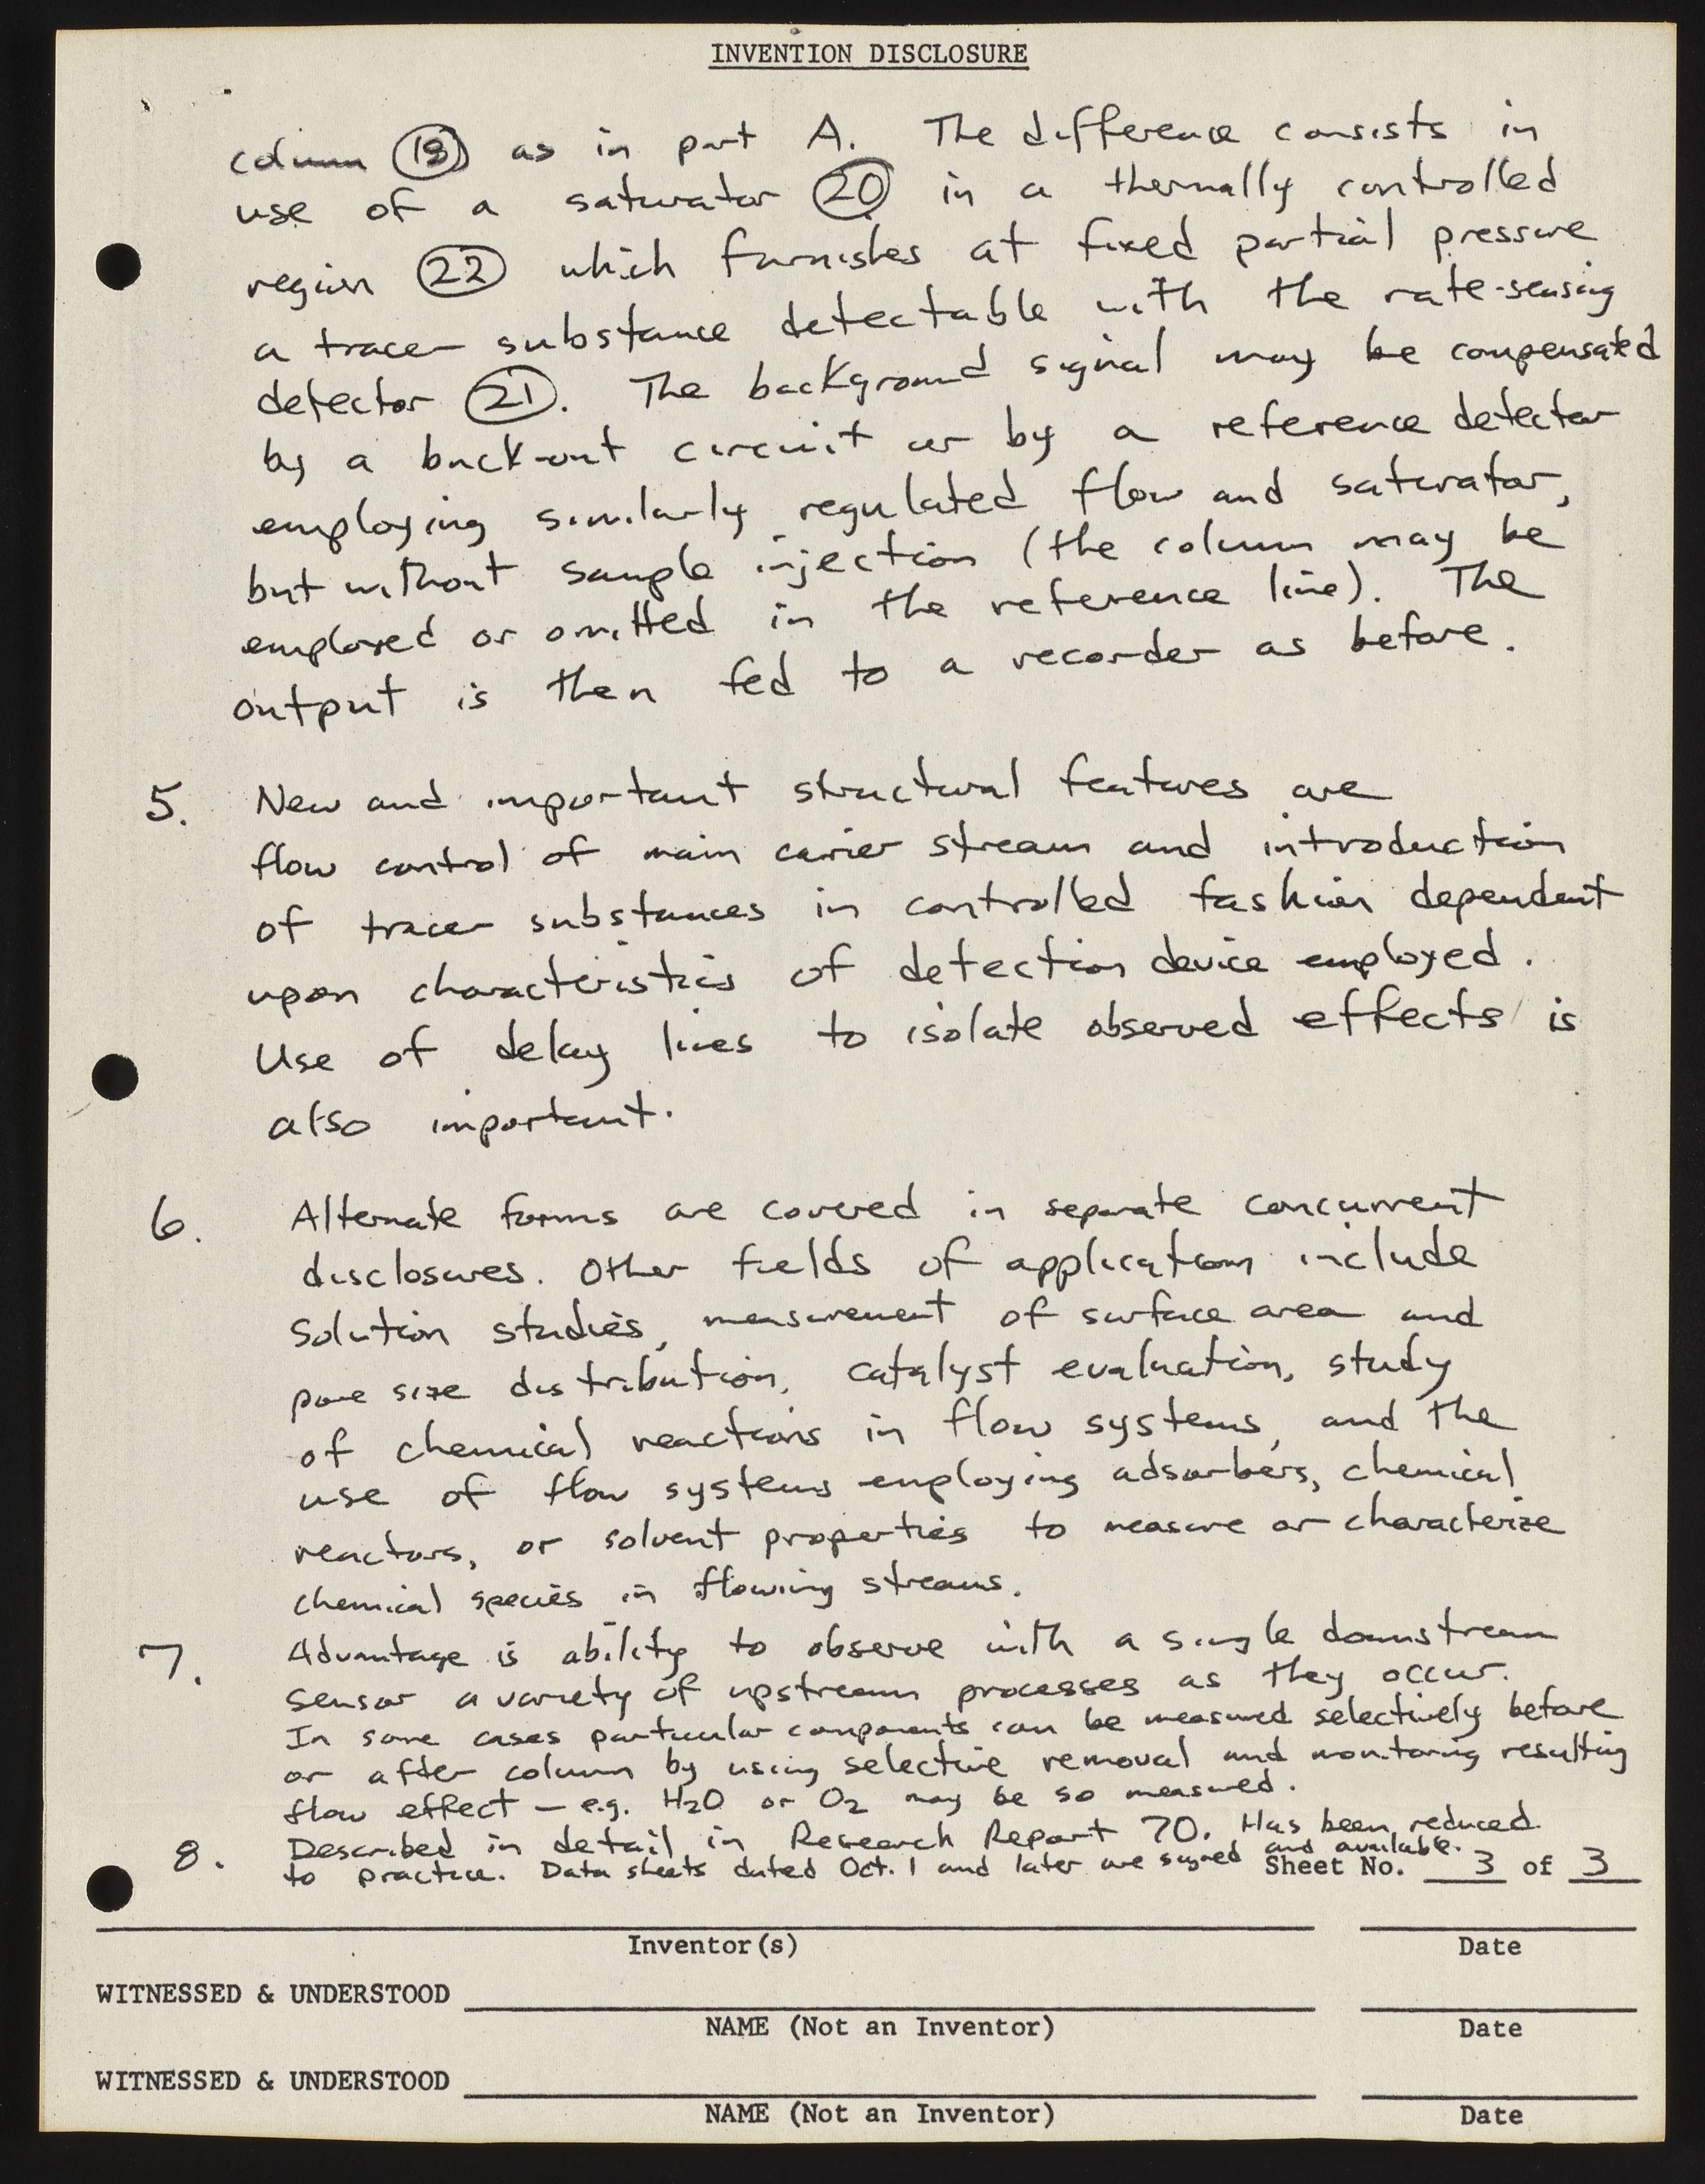 INVENTION DISCLOSURE
column (18) as in part A. The difference consists in
use of a saturator (20) in a thermally controlled
region (22) which furnishes at fixed partial pressure
a tracer substance detectable with the rate-sensing
detector (21). The background signal may be compensated
by a buck-out circuit or by a reference detector
employing similarly regulated flow and saturator,
but without sample injection (the column may be
employed or omitted in the reference line). The
output is then fed to a recorder as before.
5. New and important structural features are
flow control of main carrier stream and introduction
of tracer substances in controlled fashion dependent
upon characteristics of detection device employed.
Use of delay lines to isolate observed effects is
also important.
6. Alternate forms are covered in separate concurrent
disclosures. Other fields of application include
solution studies, measurement of surface area and
pore size distribution, catalyst evaluation, study
of chemical reactions in flow systems, and the
use of flow systems employing adsorbers, chemical
reactors, or solvent properties to measure or characterize
chemical species in flowing streams.
7. Advantage is ability to observe with a single downstream
sensor a variety of upstream processes as they occur.
In some cases particular components can be measured selectively before
or after column by using selective removal and monitoring resulting
flow effect — e.g. H2O or O2 may be so measured.
8. Described in detail in Research Report 70. Has been reduced
to practice. Data sheets dated Oct. 1 and later are signed and available.
Sheet No. 3 of 3
Inventor(s) Date
WITNESSED & UNDERSTOOD
NAME (Not an Inventor) Date
WITNESSED & UNDERSTOOD
NAME (Not an Inventor) Date